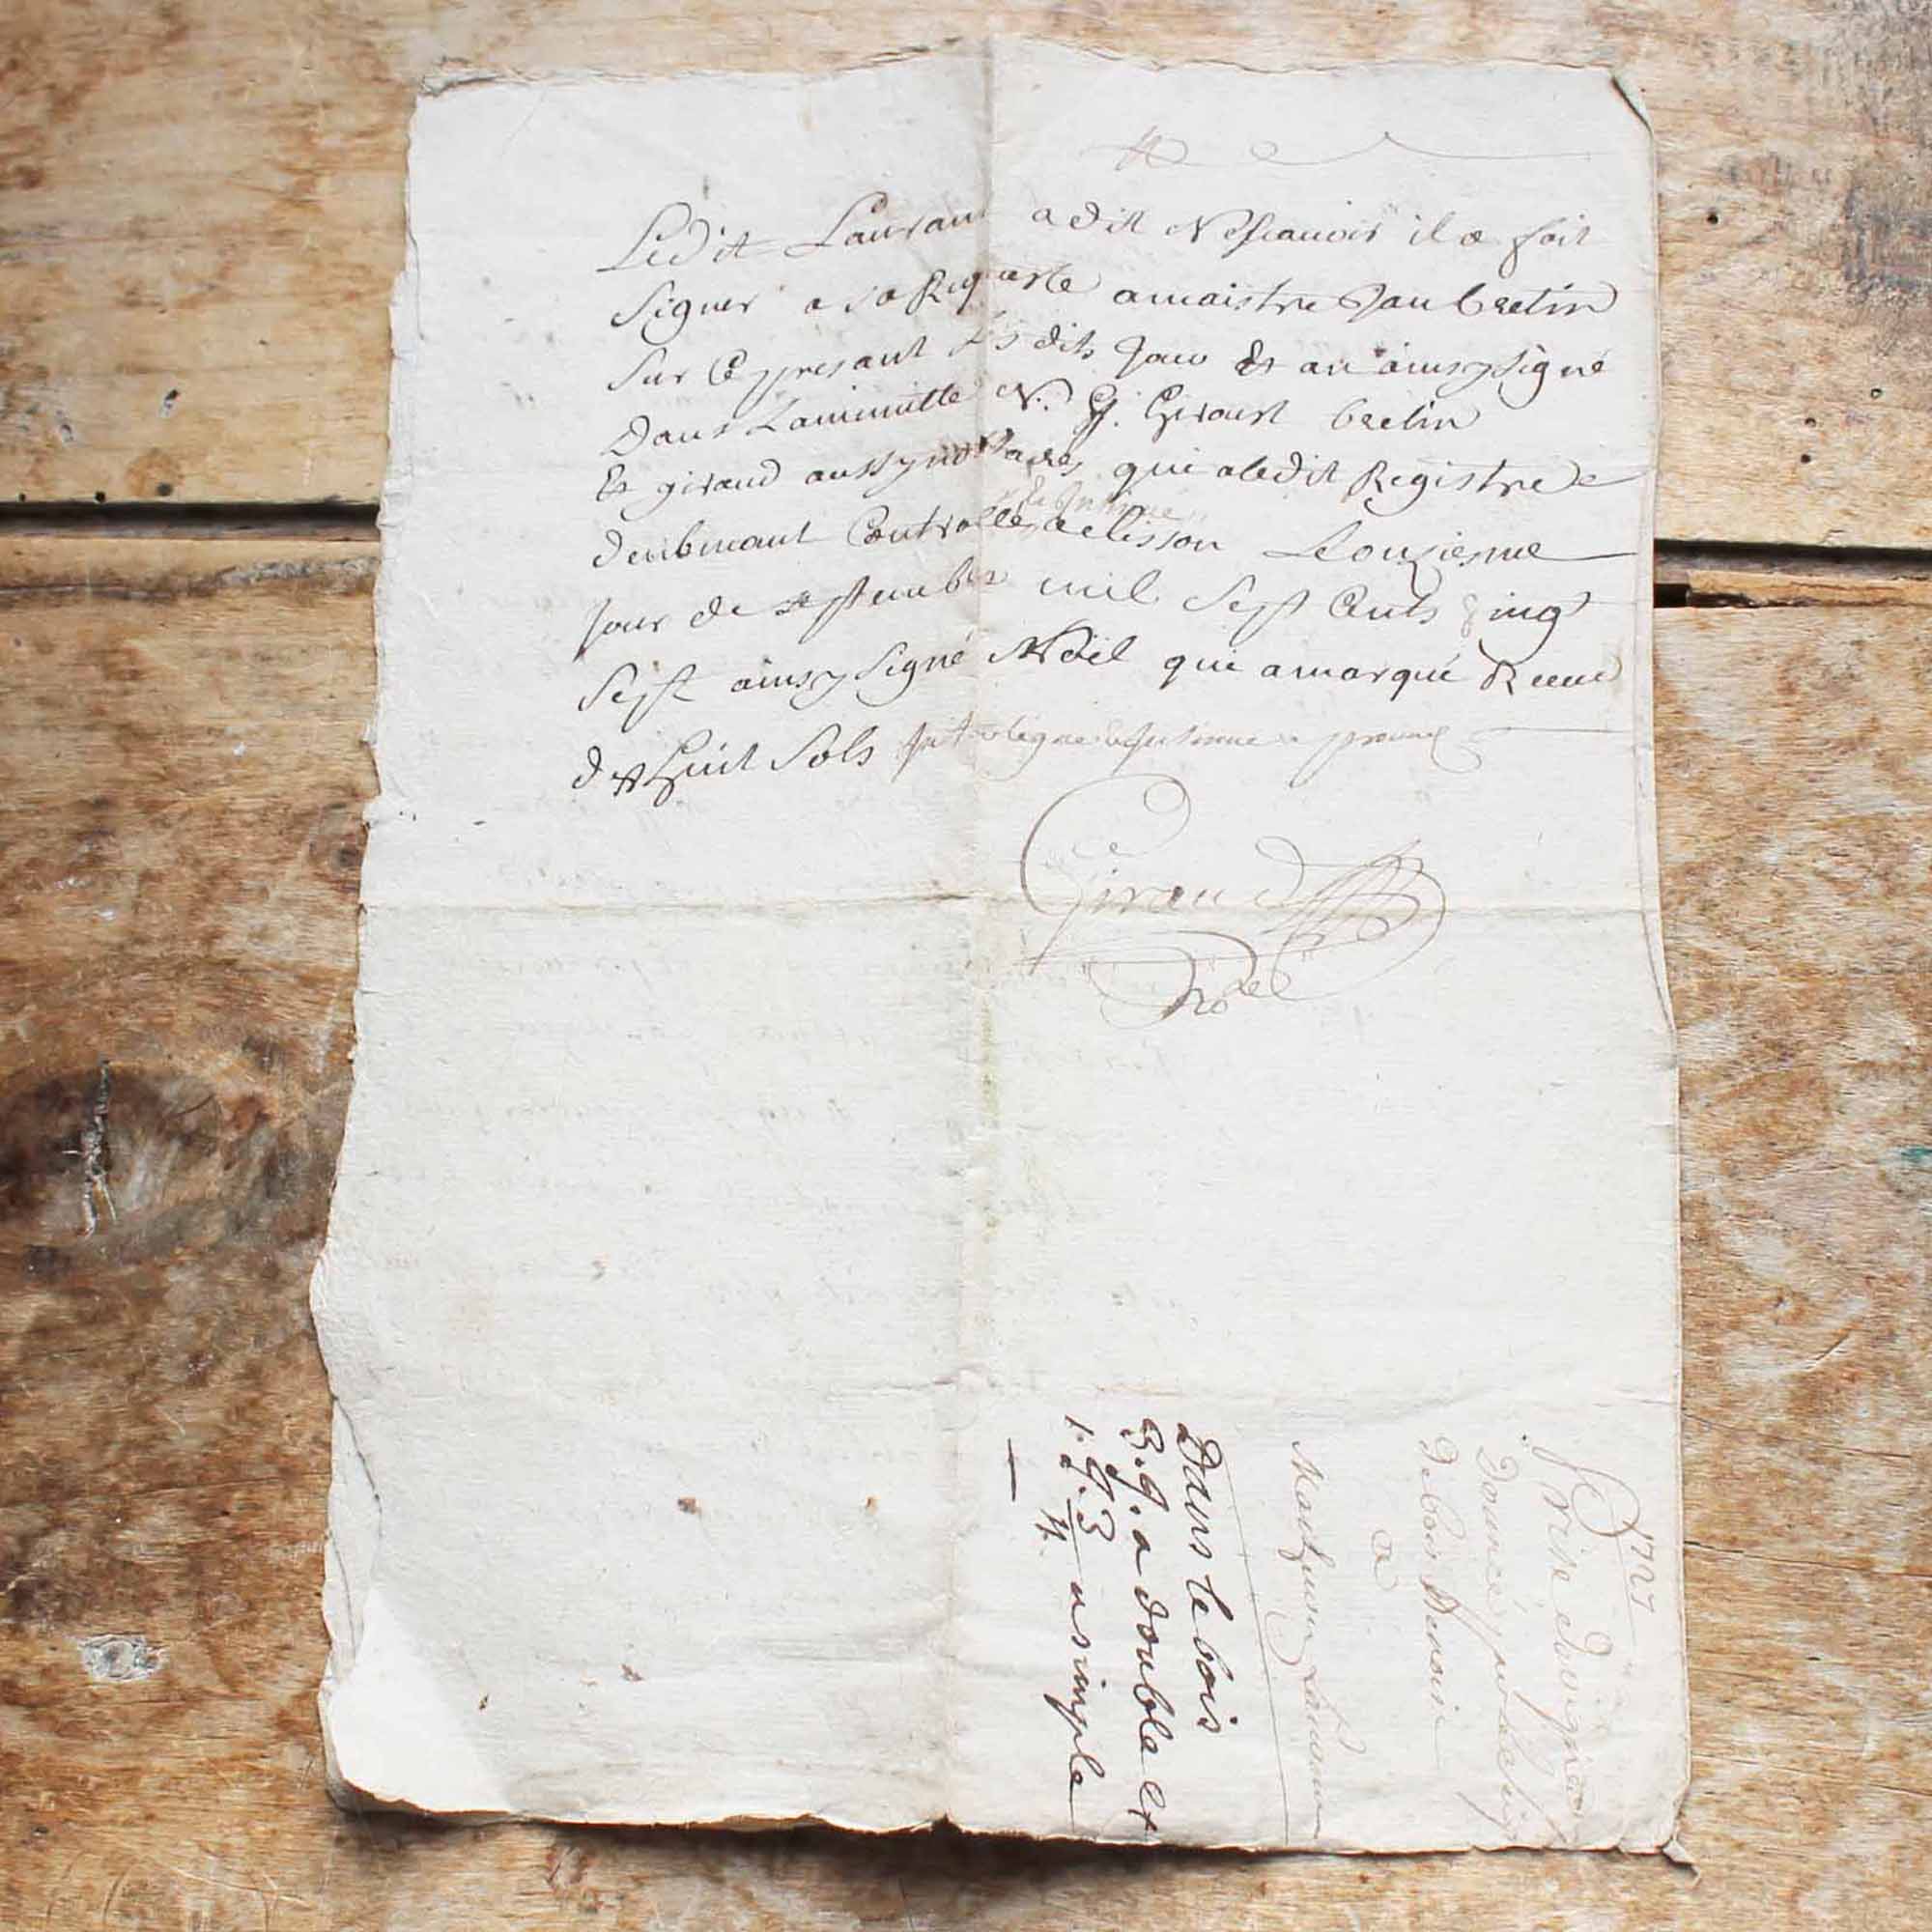 Ledit Lauran a dit Ne scauoir il a fait
signer a sa Requeste a maistre Jau bretin
sur Ce presant Les dits Jour Et an ainsy signé
Dans La minutte N. G. Girault bretin
Et giraud aussy nottaires qui a ledit Registre
deubmant Controllé a clisson Le onziesme
Jour de septembre mil sept Cents Ving
sept ainsy signé Noël qui a marqué Receu
dix huit sols
Giraud
Noel
1727
prise
Donnée par le
De bois
a
Mathurin Lauran
Dans le bois
3. g. a double et
1. g. 3 a simple
4.